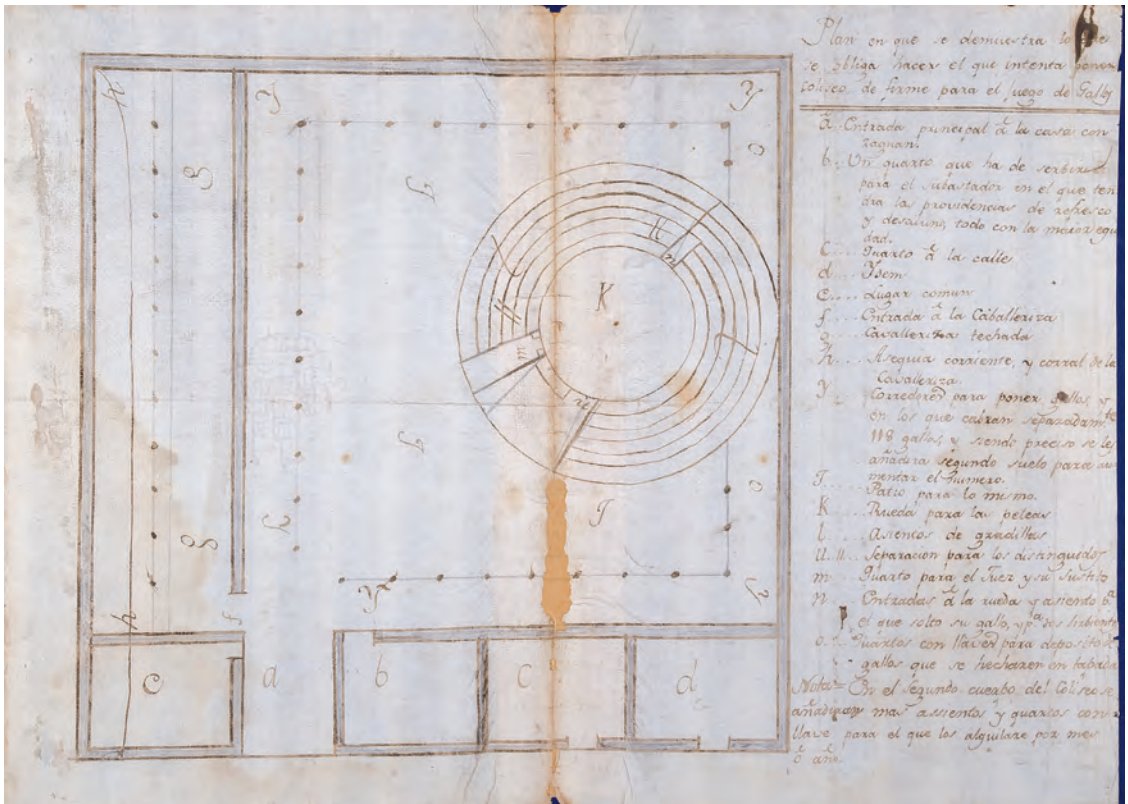 Plan en que se demuestra lo que
se obliga hacer el que intenta poner
Coliseo de firme para el juego de Gallos
a.. Entrada principal á la casa con
zaguan.
b.. Un quarto que ha de serbir
para el subastador en el que ten
dra la providencias de refresco
y desaiuno, todo con la maior equi
dad.
C.... Quarto á la calle
d.... Ydem
e.... Lugar comun
f.... Entrada á la Caballeriza
g.... Cavalleriza techada
h... Asequia corriente, y corral de la
Cavalleriza.
Y... Corredores para poner gallos, y
en los que cabran separadamte
118 gallos, y siendo preciso se les
añadira segundo suelo para au
mentar el numero.
J.... Patio para lo mismo.
K.... Rueda para las peleas
l.... Asientos de gradillas
ll. ll.. Separacion para los distinguidos
m... Quarto para el Juez y su
n... Entradas á la rueda y asiento
el que solto su gallo, y
o... Quartos con llaves para deposito de
gallos que se hecharen en tapada
Nota= En el segundo cuerbo del Coliseo se
añadiran mas assientos y quartos con
llave para el que los alquilare por mes
ó año
h
g
Y
Y
o
J
ll
n
K
ll
m
n
J
J
o
Y
g
Y
Y
h
f
e
a
b
C
d